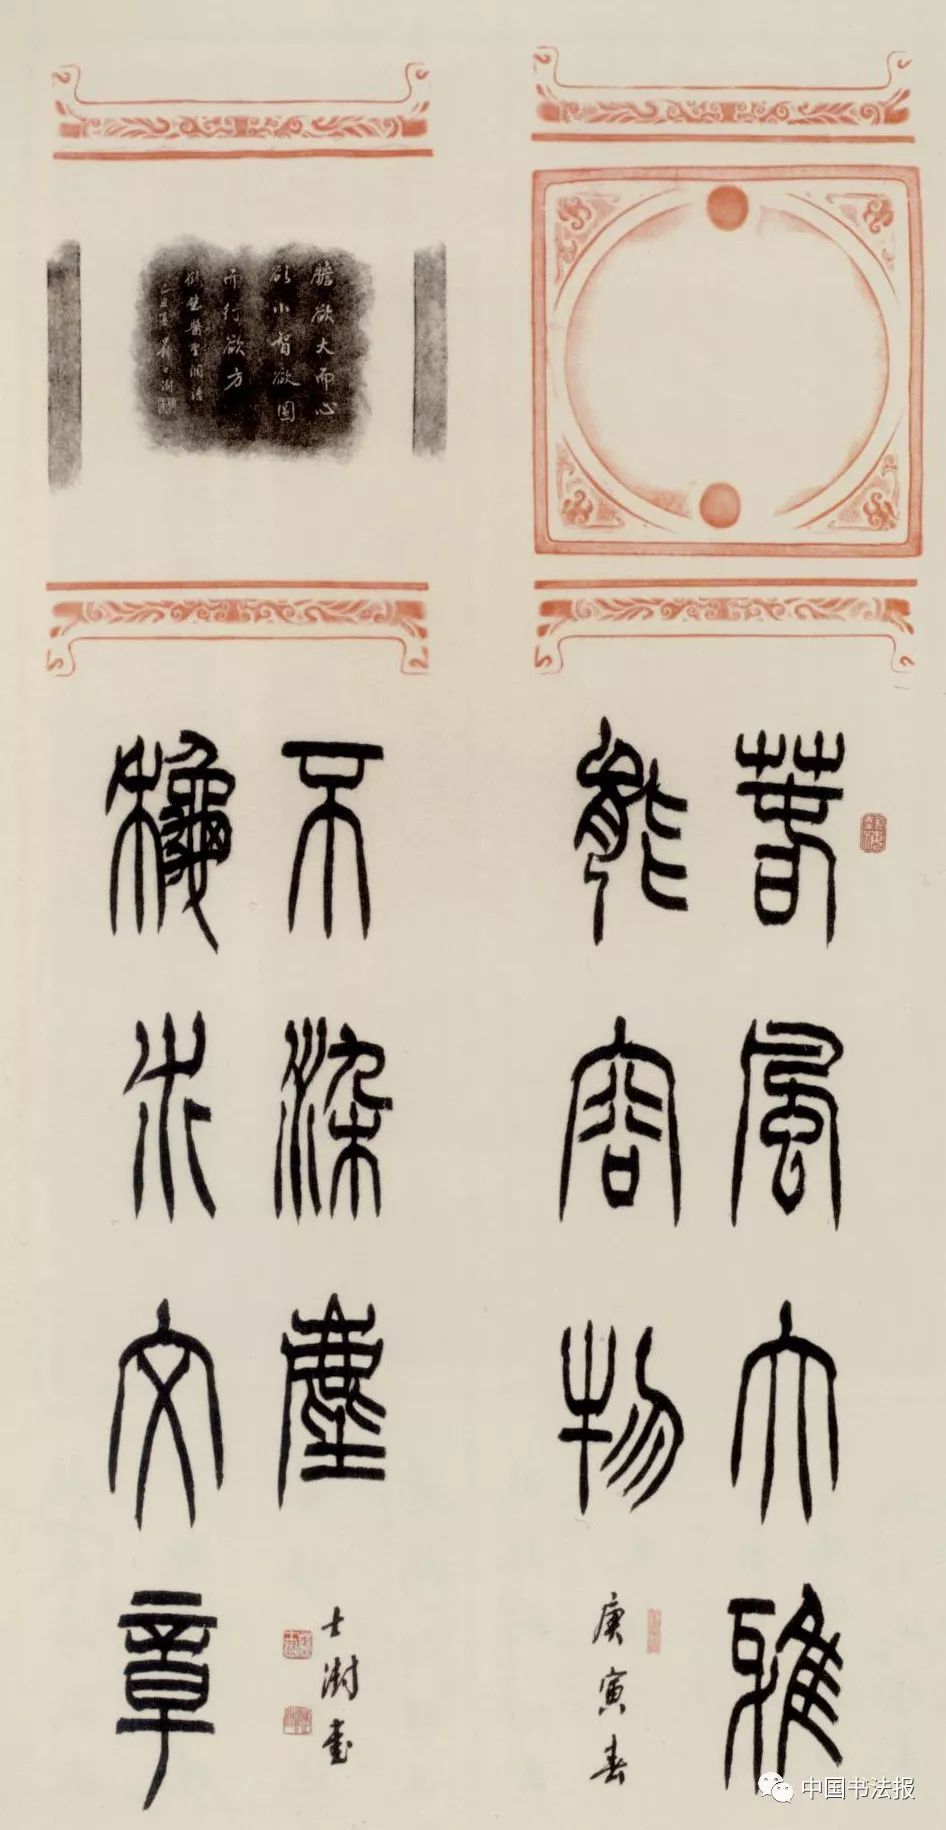 膽欲大而心
欲小智欲圓
而行欲方
春風大雅
能容物
庚寅春
龝水文章
不染塵
士澍書
中国书法报